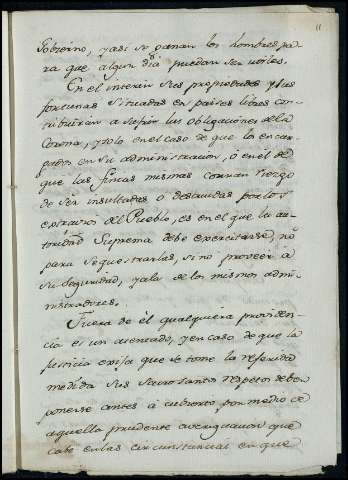 11
Gobierno, y asi se ganan los hombres pa-
ra que algun dia puedan ser utiles.
En el interin sus propiedades y las
fortunas situadas en paises libres con-
tribuirán a sufrir las obligaciones de la
Corona, y solo en el caso de que los encar-
gados en su administracion, o en el de
que las fincas mismas corran riezgo
de ser insultadas o destruidas por los
extravios del Pueblo, es en el que la au-
toridad Suprema debe exercitarse, no
para sequestrarlas, si no proveer á
su seguridad, y a la de los mismos admi-
nistradores.
Fuera de él qualquiera providen-
cia es un atentado, y en caso de que la
justicia exija que se tome la referida
medida sus sacrosantos respetos deben
ponerse antes á cubierto por medio de
aquella prudente averiguacion que
cabe en las circunstancias en que